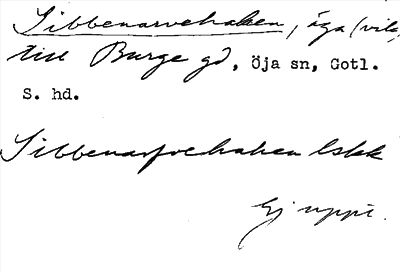 Sibbenarvehaken, äga (vik,
till Burge gd, Öja sn, Gotl.
S. hd.
Sibbenarfvehaken lskk
Ej uppt.